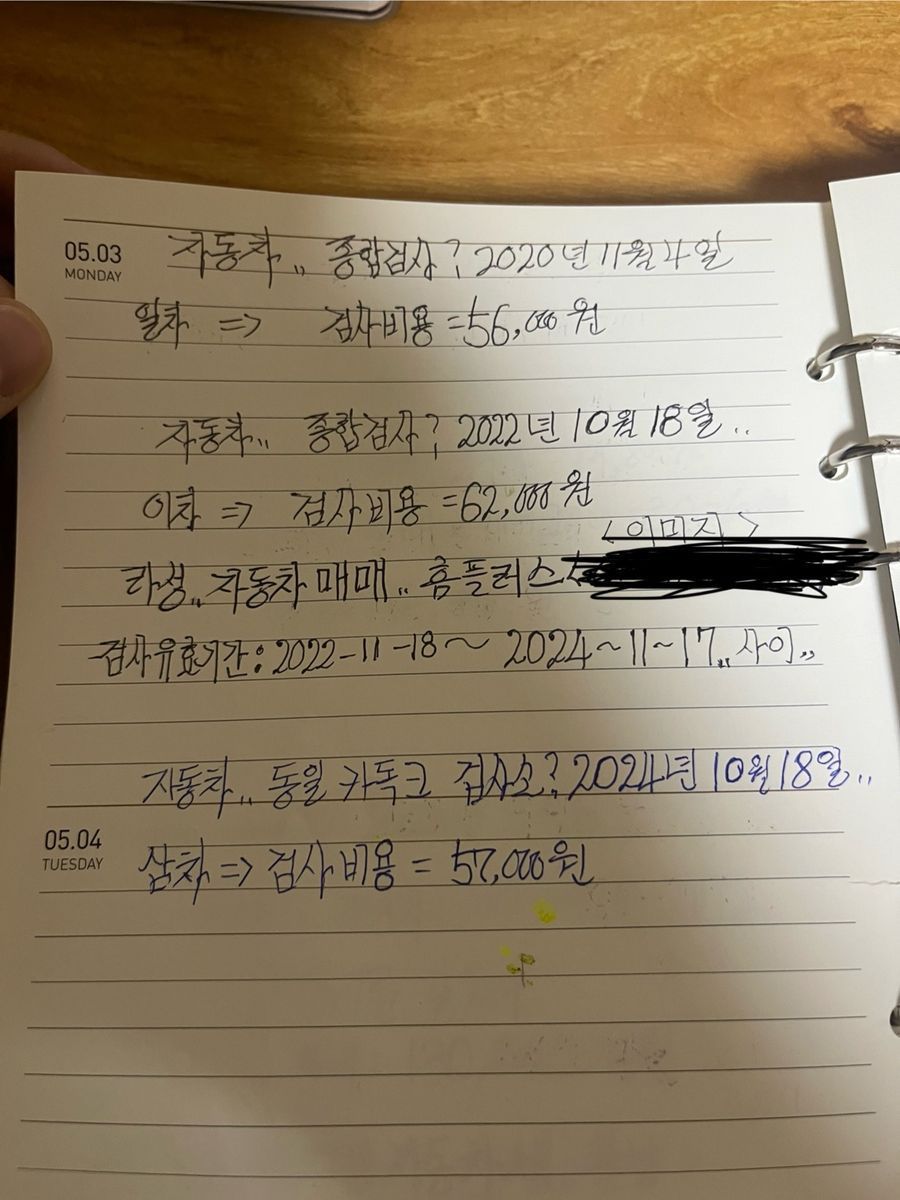 05.03
MONDAY
자동차,, 종합검사? 2020년 11월 4일
일차 => 검사비용 = 56,000원
자동차,, 종합검사? 2022년 10월 18일..
이차 => 검사비용 = 62,000원
<이미지>
라성,, 자동차매매,, 홈플러스
검사유효기간: 2022-11-18 ~ 2024~11~17,, 사이,,
자동차,, 동일 카독크 검사소? 2024년 10월 18일..
05.04
TUESDAY
삼차 => 검사비용 = 57,000원